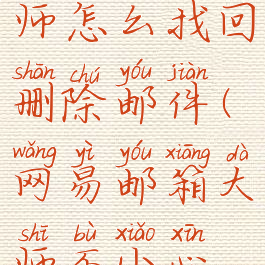 师怎么找回
shān chú yóu jiàn
删除邮件(
wǎng yì yóu xiāng dà
网易邮箱大
shī bù xiǎo xīn
师不小心